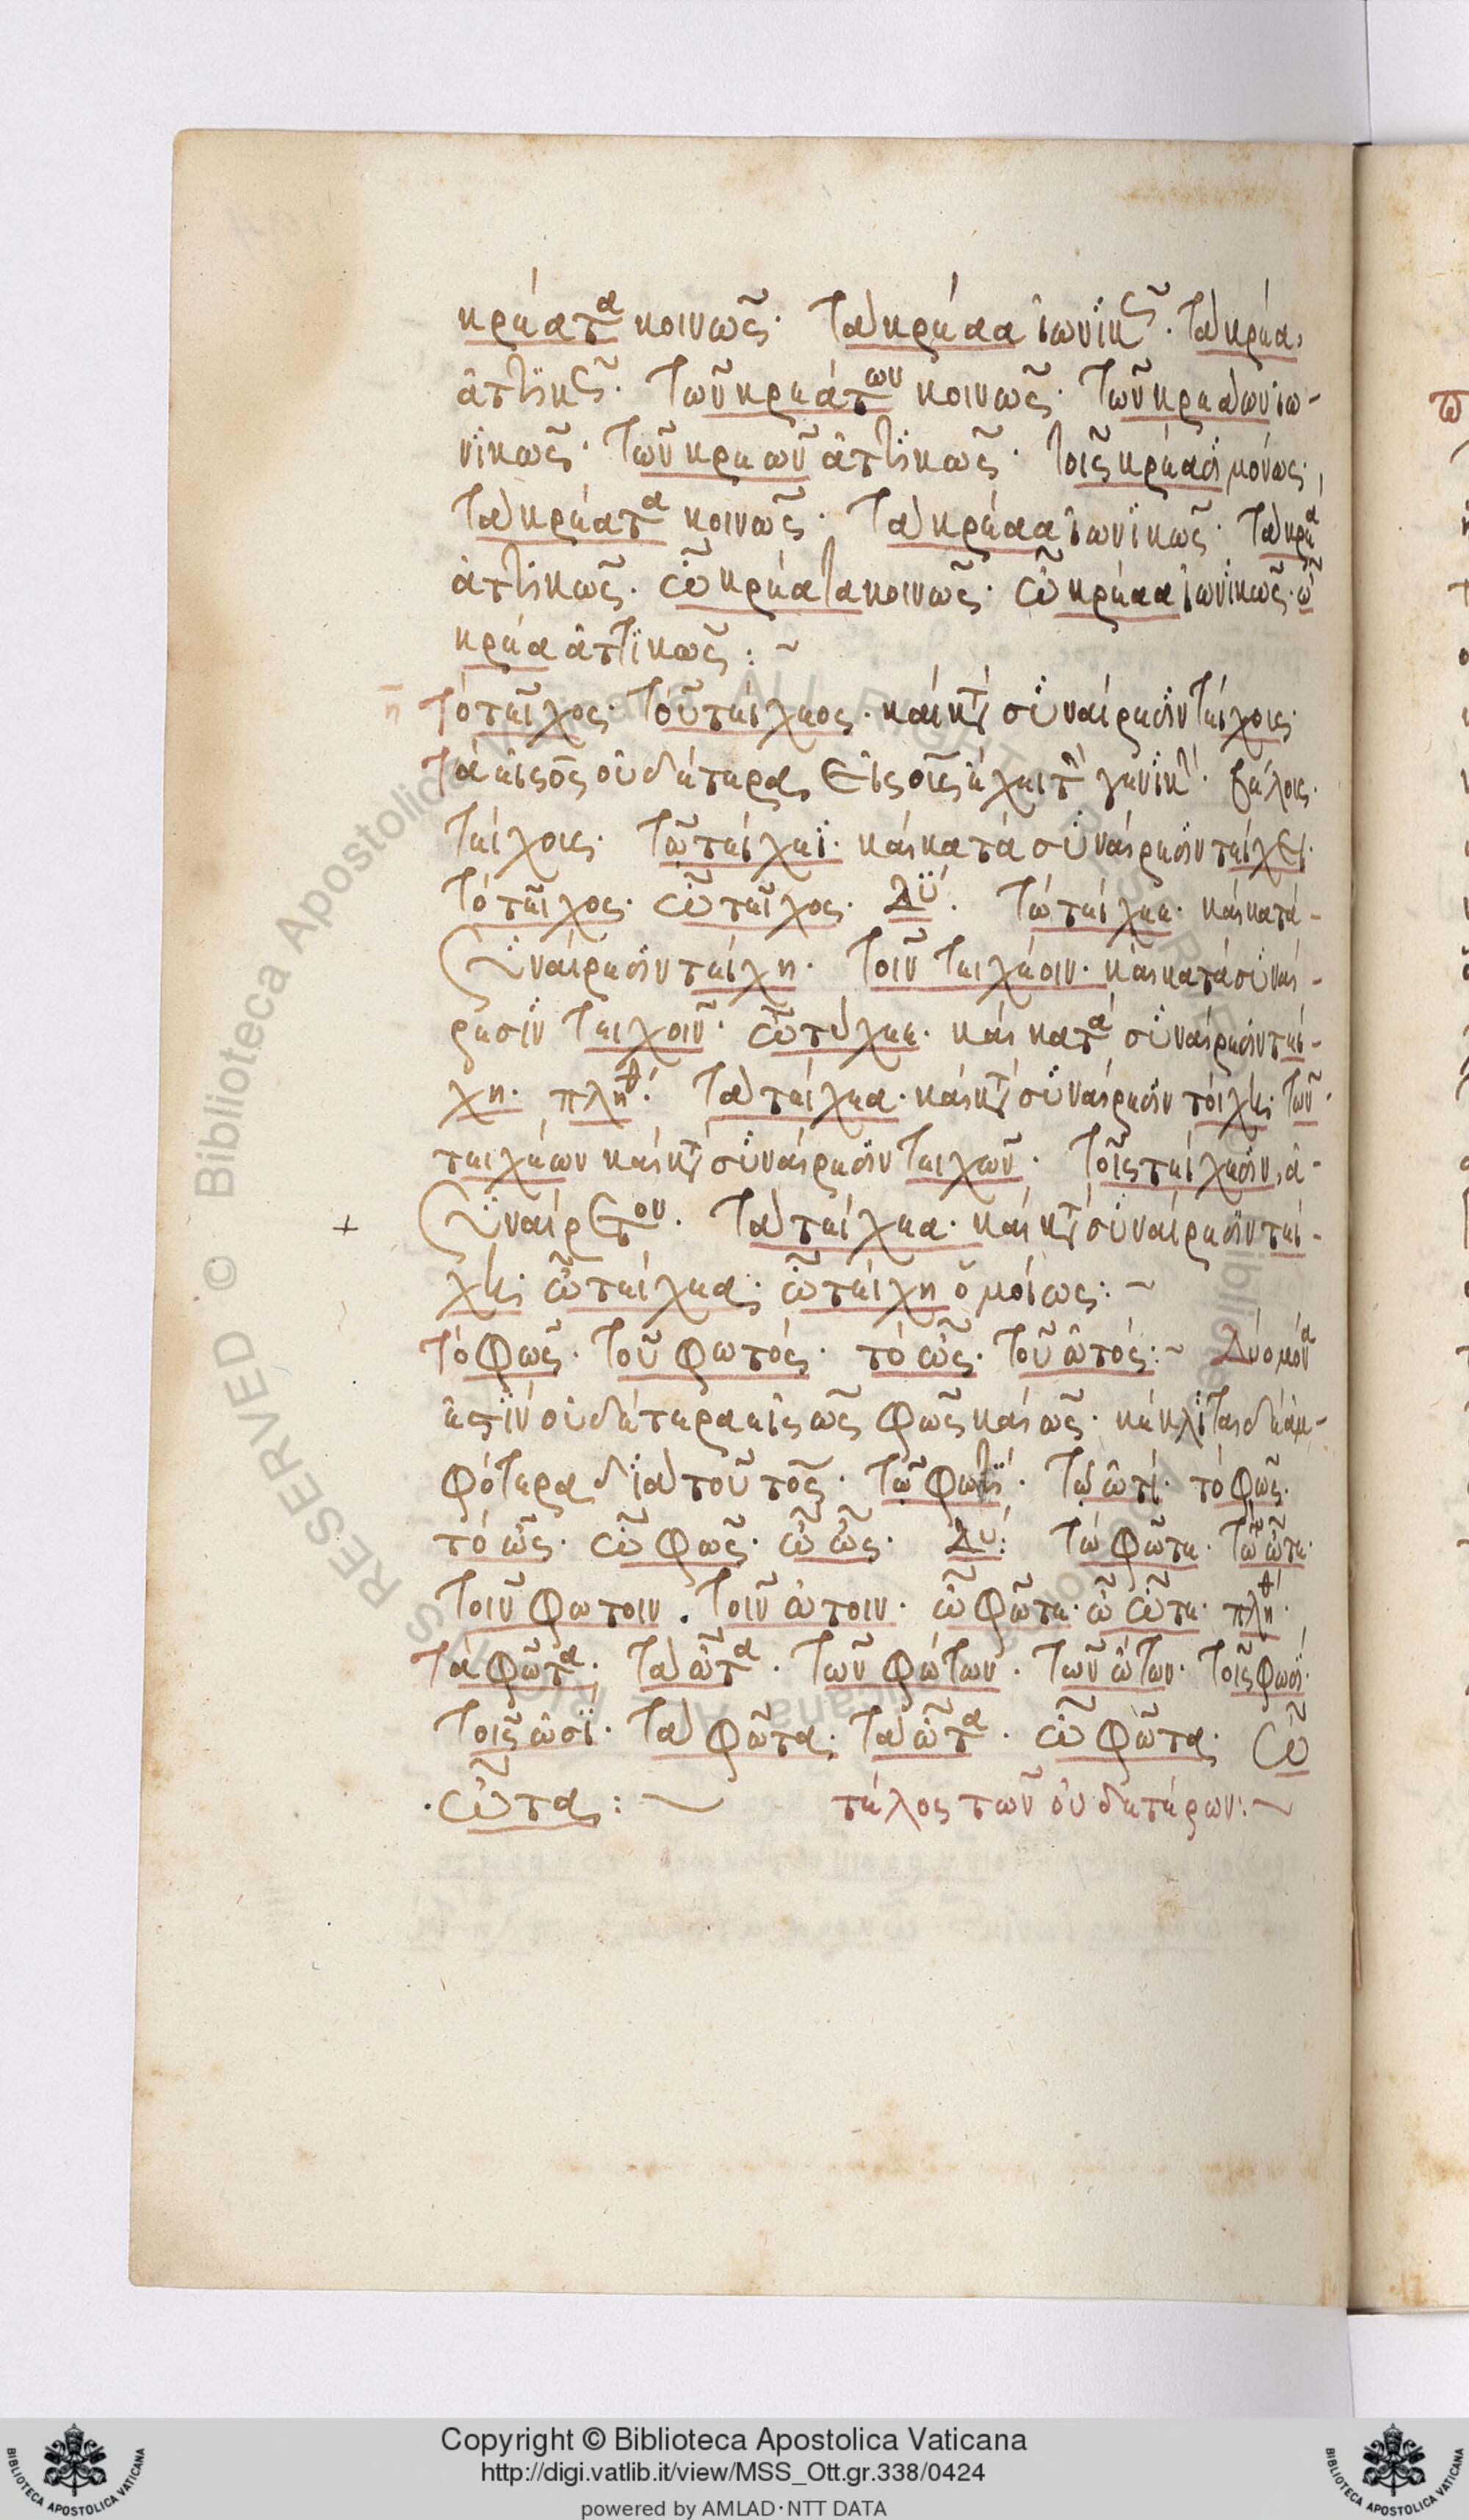 κρέατα κοινῶς· Τὰ κρέαα ἰωνικῶς· Τὰ κρέα
ἀττικῶς· Τῶν κρεάτων κοινῶς· Τῶν κρεάων ἰω-
νικῶς· Τῶν κρεῶν ἀττικῶς· Τοῖς κρέασι μόνως·
Τὰ κρέατα κοινῶς· Τὰ κρέαα ἰωνικῶς· Τὰ κρέα
ἀττικῶς· ὦ κρέατα κοινῶς· ὦ κρέαα ἰωνικῶς· ὦ
κρέα ἀττικῶς: ~
η Τὸ τεῖχος· Τοῦ τείχεος· καὶ κτ συναίρεσιν τείχους·
Τὰ εἰς ος οὐδέτερα, εἰς ους ἔχει τ γενικ βέλους·
τείχους· Τῷ τείχεϊ· καὶ κατὰ συναίρεσιν τείχει·
Τὸ τεῖχος· ὦ τεῖχος· Δυ. Τὼ τείχεε· καὶ κατὰ-
συναίρεσιν τείχη· Τοῖν τειχέοιν· καὶ κατὰ συναί-
ρεσιν τειχοῖν· ὦ τείχεε· καὶ κατὰ συναίρεσιν τεί-
χη· πληθ: Τὰ τείχεα· καὶ κτ συναίρεσιν τείχη· Τῶν
τειχέων καὶ κτ συναίρεσιν τειχῶν· Τοῖς τείχεσιν, ἀ-
συναίρετον· Τὰ τείχεα· καὶ κτ συναίρεσιν τεί-
χη· ὦ τείχεα· ὦ τείχη ὁμοίως: ~
Τὸ φῶς· Τοῦ φωτός· τὸ ὦς· Τοῦ ὠτός: ~ Δύο μόνα
ἐστὶν οὐδέτερα εἰς ως φῶς καὶ ὦς· κέκλιται δὲ ἀμ-
φότερα διὰ τοῦ τος· Τῷ φωτί· Τῷ ὠτί· τὸ φῶς·
τὸ ὦς· ὦ φῶς· ὦ ὦς· Δυ: Τὼ φῶτε· Τὼ ὦτε·
Τοῖν φωτοιν. Τοῖν ὠτοιν· ὦ φῶτε· ὦ ὦτε· πληθ·
Τὰ φῶτα· Τὰ ὦτα· Τῶν φώτων· Τῶν ὤτων· Τοῖς φωσί·
Τοῖς ὠσί· Τὰ φῶτα· Τὰ ὦτα· ὦ φῶτα· ὦ
ὦτα: ~ τέλος τῶν οὐδετέρων: ~
Copyright © Biblioteca Apostolica Vaticana
http://digi.vatlib.it/view/MSS_Ott.gr.338/0424
powered by AMLAD·NTT DATA